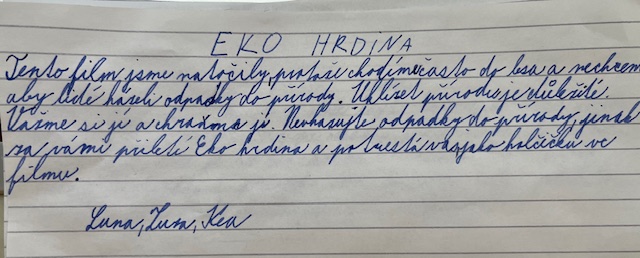 EKO HRDINA
Tento film jsme natočily, protože chodíme často do lesa a nechceme
aby lidé házeli odpadky do přírody. Uklízet přírodu je důležité.
Važme si jí a chraňme jí. Nevhazujte odpadky do přírody, jinak
za vámi přiletí Eko hrdina a potrestá vás jako holčičku ve
filmu.
Luna, Zuza, Kea